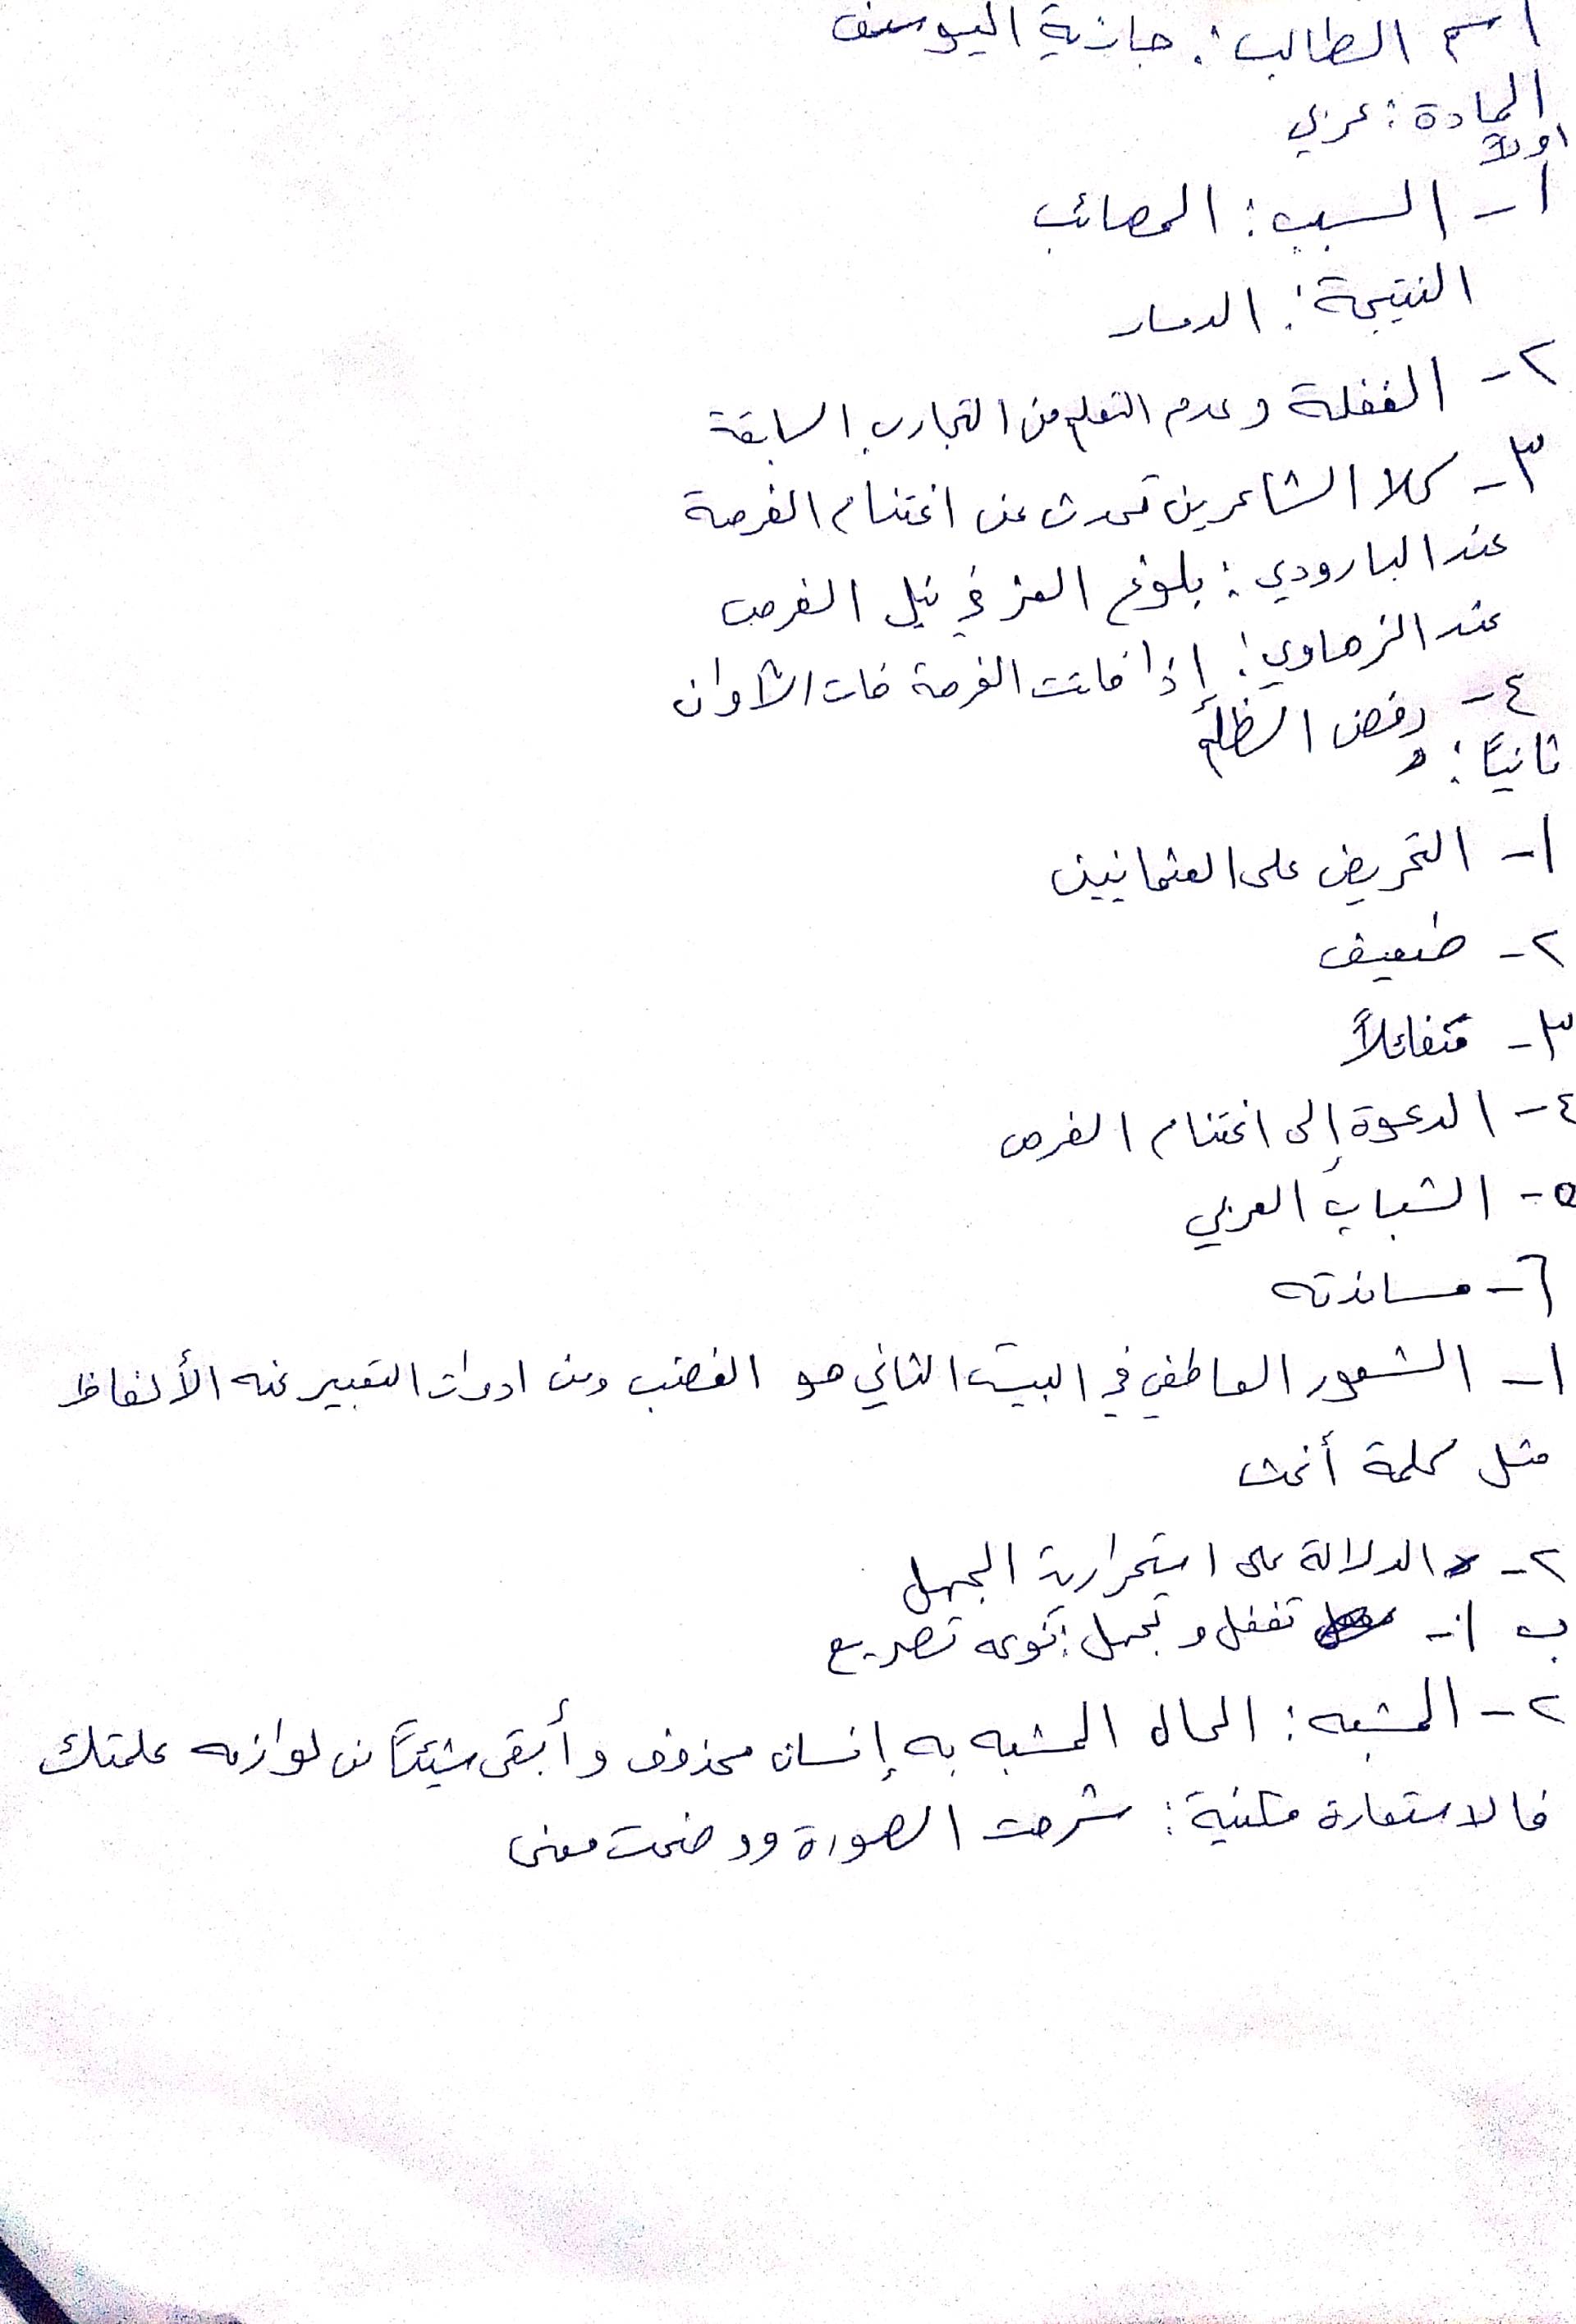 اسم الطالب: جازية اليوسف
المادة: عربي
اولاً
١- السبب: المصائب
النتيجة: الدمار
٢- الغفلة وعدم التعلم من التجارب السابقة
٣- كلا الشاعرين تحدث عن اغتنام الفرصة
عند البارودي: بلوغ العز في نيل الفرص
عند الزهاوي: إذا فاتت الفرصة فات الأوان
٤- رفض الظلم
ثانياً:
١- التحريض على العثمانيين
٢- ضعيف
٣- متفائلاً
٤- الدعوة إلى اغتنام الفرص
٥- الشباب العربي
٦- مساندته
١- الشعور العاطفي في البيت الثاني هو الغضب ومن ادوات التعبير عنه الألفاظ
مثل كلمة أنحت
٢- الدلالة على استمرارية الجهل
ب ١- تغفل و تجهل: نوعه تصريع
٢- المشبه: الحال المشبه به إنسان محذوف وأبقى شيئاً من لوازمه علمتك
فالاستعارة مكنية: شرحت الصورة ووضحت معنى